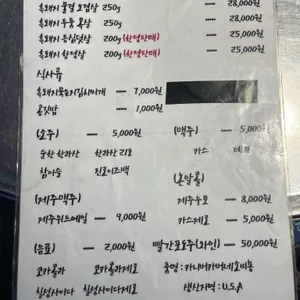 흑돼지 물결 오겹살 250g ---- 28,000원
흑돼지 몽중 목살 200g ---- 28,000원
흑돼지 등심덧살 200g (한정판매) ---- 25,000원
흑돼지 항정살 200g (한정판매) ---- 25,000원
식사류
흑돼지묵은지김치찌개 ---- 7,000원
공깃밥 ---- 1,000원
(소주) ---- 5,000원
순한 한라산 한라산 21도
참이슬 진로이즈백
(맥주) ---- 5,000원
카스 테라
(제주맥주)
제주위트에일 ---- 9,000원
(논알콜)
제주누보 ---- 8,000원
카스제로 ---- 5,000원
(음료) ---- 2,000원
코카콜라 코카콜라제로
칠성사이다 칠성사이다제로
빨간모호주(와인) ---- 50,000원
품명 : 카니버카버네소비뇽
생산지역 : U.S.A